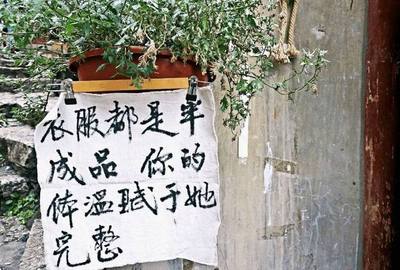 衣服都是半
成品 你的
体温赋于她
完整